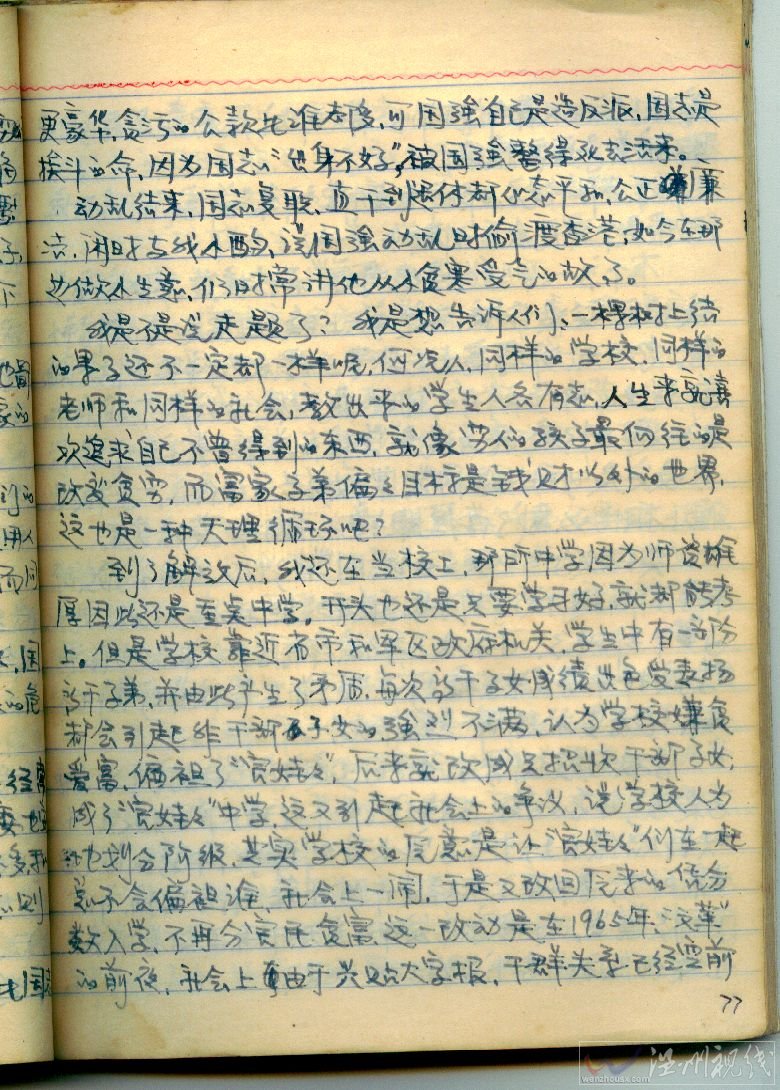 更豪华,贪污的公款比谁都多,可国强自己是造反派,国志是
挨斗的命,因为国志“出身不好”,被国强整得死去活来。
动乱结束,国志复职,直干到退休都心态平和,公正廉
洁,闲时去钱水酌,说国强动乱时偷渡香港,如今在那
边做水生意,们时常讲他从贫寒受气的故了。
我是不是说走题了?我是想告诉人们:一棵树上结
的果子还不一定都一样呢,何况人,同样的学校,同样的
老师和同样的社会,教出来的学生人各有志,人生来就喜
欢追求自己不曾得到的东西,就像穷人的孩子最向往的是
改变贫穷,而富家子弟偏偏目标是钱财以外的世界,
这也是一种天理循环吧?
到了解放后,我还在当校工,那所中学因为师资雄
厚因此还是重点中学。开头也还是只要学习好,就都能考
上。但是学校靠近省市和军区政府机关,学生中有一部份
高干子弟,并由此产生了矛盾,每次高干子女成绩出色受表扬
都会引起非干部子女的强烈不满,认为学校嫌贫
爱富,偏袒了“官娃娃”,后来就改成只招收干部子女,
成了“官娃娃”中学,这又引起社会上的争议,说学校人为
地划分阶级,其实学校的原意是让“官娃娃”们在一起
就不会偏袒谁,社会上一闹,于是又改回原来的凭分
数入学,不再分官民贫富,这一改动是在1965年,“文革”
的前夜,社会上由于兴贴大字报,干群关系已经空前
77
温州视线
wenzhousx.com